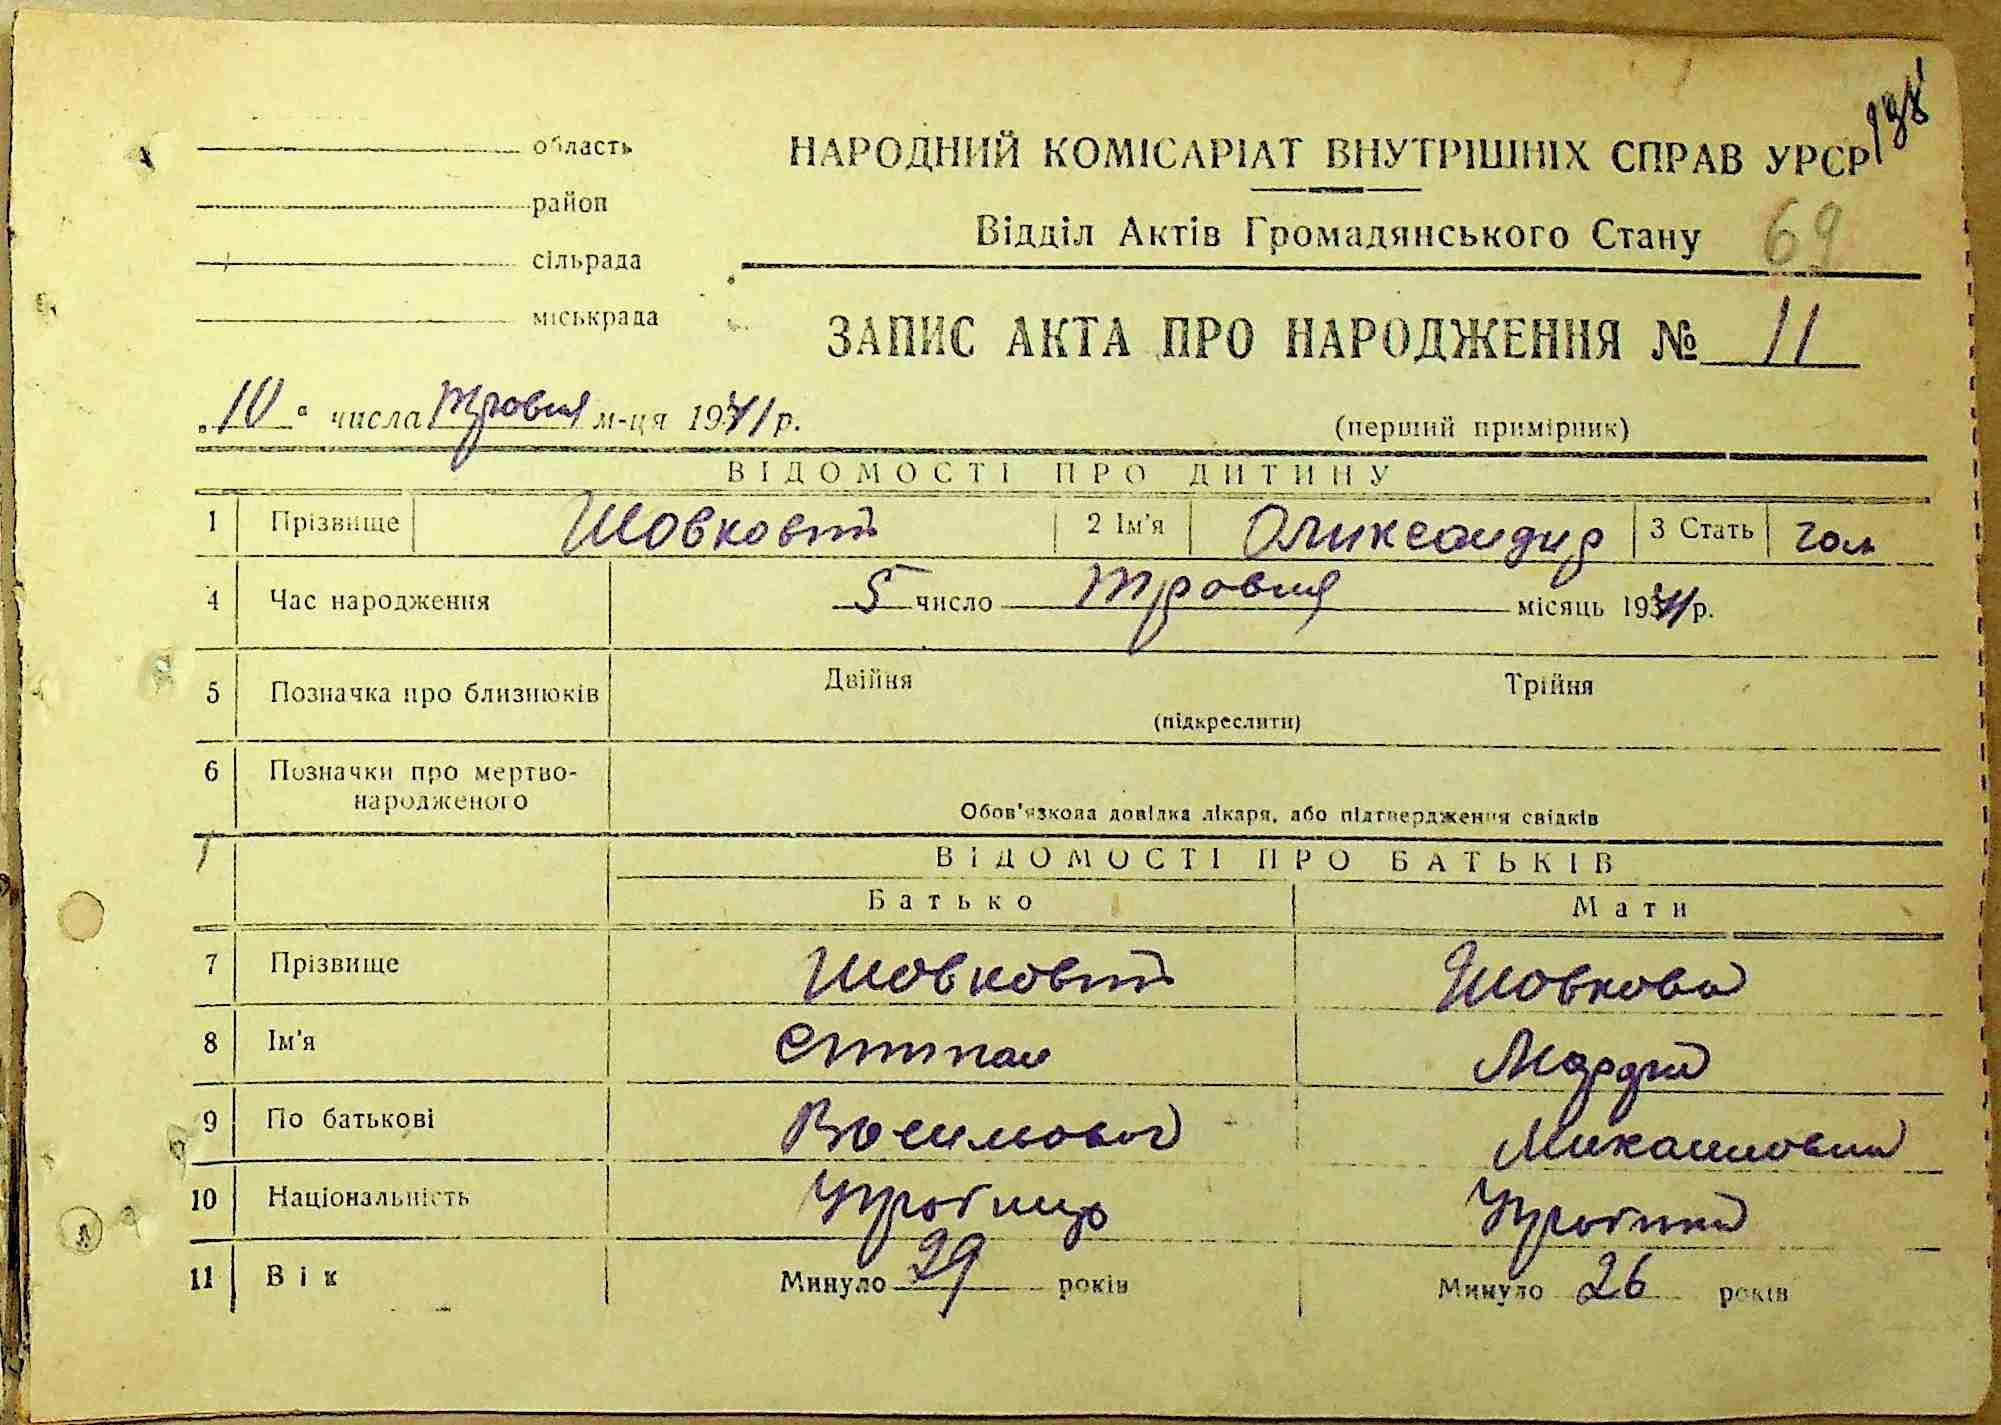 138
область
район
сільрада
міськрада
НАРОДНИЙ КОМІСАРІАТ ВНУТРІШНІХ СПРАВ УРСР
Відділ Актів Громадянського Стану 69
ЗАПИС АКТА ПРО НАРОДЖЕННЯ № 11
„10“ числа травня м-ця 1941 р.
(перший примірник)
ВІДОМОСТІ ПРО ДИТИНУ
1 Прізвище Шовковий 2 Ім'я Олександр 3 Стать чол
4 Час народження 5 число травня місяць 1941 р.
5 Позначка про близнюків Двійня Трійня
(підкреслити)
6 Позначки про мертво-
народженого
Обов'язкова довідка лікаря, або підтвердження свідків
ВІДОМОСТІ ПРО БАТЬКІВ
Батько Мати
7 Прізвище Шовковий Шовкова
8 Ім'я Степан Марія
9 По батькові Васильович
10 Національність Українець Українка
11 Вік Минуло 29 років Минуло 26 років